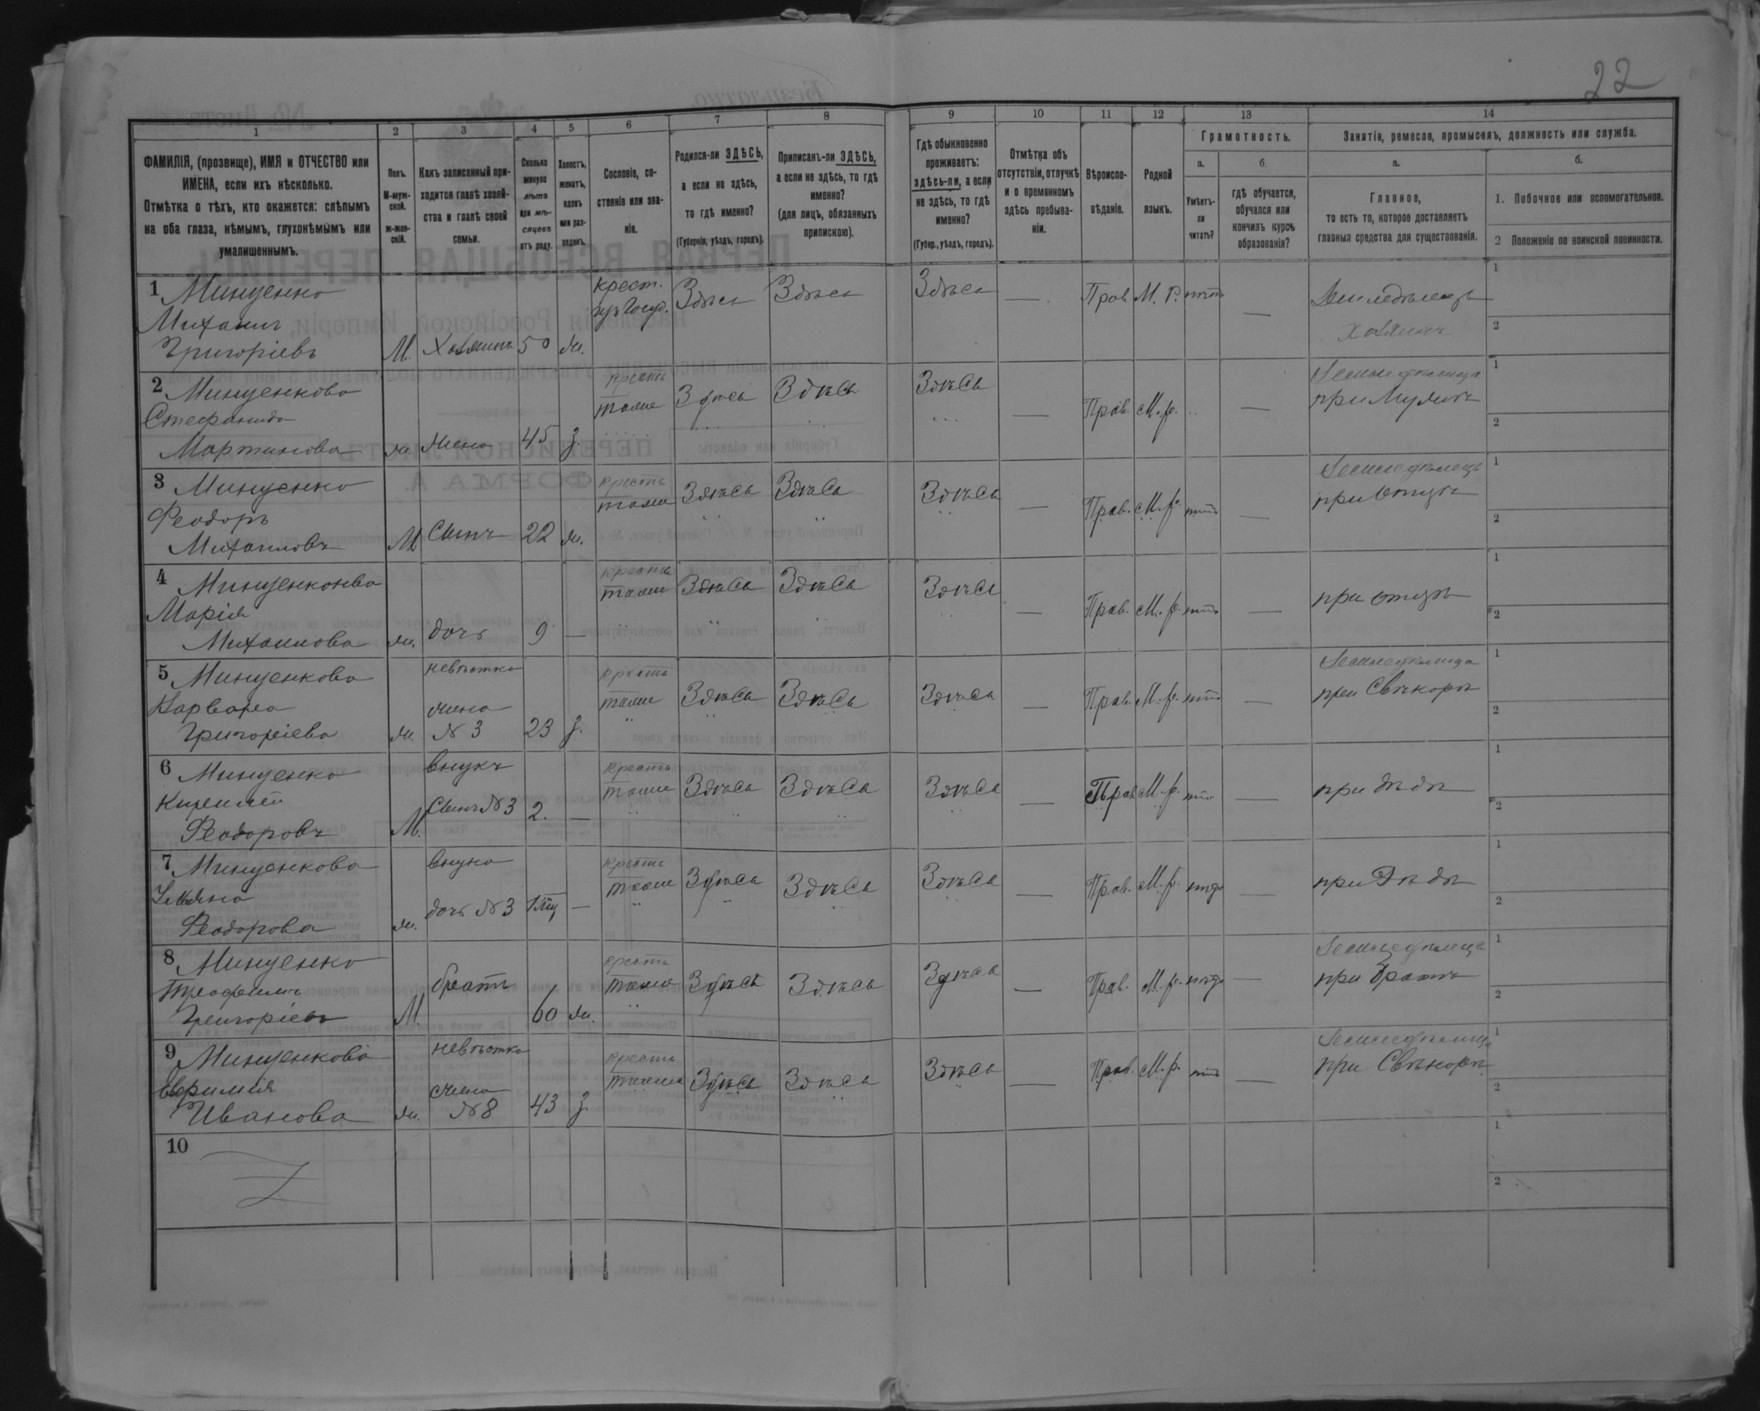 22
1 2 3 4 5 6 7 8 9 10 11 12 13 14
ФАМИЛІЯ, (прозвище), ИМЯ и ОТЧЕСТВО или ИМЕНА, если ихъ нѣсколько.
Отмѣтка о тѣхъ, кто окажется: слѣпымъ на оба глаза, нѣмымъ, глухонѣмымъ или умалишеннымъ.
Полъ. М-мужской. ж-женскій.
Какъ записанный приходится главѣ хозяйства и главѣ своей семьи.
Сколько минуло лѣтъ или мѣсяцевъ отъ роду.
Холостъ, женатъ, вдовъ или разведенъ.
Сословіе, состояніе или званіе.
Родился-ли ЗДѢСЬ, а если не здѣсь, то гдѣ именно?
(Губернія, уѣздъ, городъ).
Приписанъ-ли ЗДѢСЬ, а если не здѣсь, то гдѣ именно?
(для лицъ, обязанныхъ припискою).
Гдѣ обыкновенно проживаетъ: здѣсь-ли, а если не здѣсь, то гдѣ именно?
(Губер., уѣздъ, городъ).
Отмѣтка объ отсутствіи, отлучкѣ и о временномъ здѣсь пребываніи.
Вѣроисповѣданіе.
Родной языкъ.
Грамотность.
а.
Умѣетъ-ли читать?
б.
гдѣ обучается, обучался или кончилъ курсъ образованія?
Занятіе, ремесло, промыселъ, должность или служба.
а.
Главное,
то есть то, которое доставляетъ главныя средства для существованія.
б.
1. Побочное или вспомогательное.
2 Положеніе по воинской повинности.
1 Минценко Михаилъ Григоріевъ М. Хозяинъ 50 ж. крест. Здѣсь Здѣсь Здѣсь — Прав. М. р. нѣтъ — Земледѣлецъ хозяинъ 1 2
2 Минценкова Стефанида Мартинова ж. жена 45 з. крестъ тоже Здѣсь Здѣсь Здѣсь — Прав. М. р. — при Мужѣ 1 2
3 Минценко Феодоръ Михаиловъ М Сынъ 22 ж. крестъ тоже Здѣсь Здѣсь Здѣсь — Прав. М. р. нѣтъ — при отцѣ 1 2
4 Минценкова Марія Михаилова ж. дочь 9 — крестъ тоже Здѣсь Здѣсь Здѣсь — Прав. М. р. нѣтъ — при отцѣ 1 2
5 Минценкова Варвара Григоріева ж. невѣстка жена №3 23 з. крестъ тоже Здѣсь Здѣсь Здѣсь — Прав. М. р. нѣтъ — при Свѣкорѣ 1 2
6 Минценко Феодоровъ М. внукъ Сынъ №3 2. — крестъ тоже Здѣсь Здѣсь Здѣсь — Прав М. р. нѣтъ — при дѣдѣ 1 2
7 Минценкова Феодорова ж. внука дочь №3 — крестъ тоже Здѣсь Здѣсь Здѣсь — Прав. М. р. — при дѣдѣ 1 2
8 Минценко Григоріевъ М. братъ 60 ж. тоже Здѣсь Здѣсь Здѣсь — Прав. М. р. — при братѣ 1 2
9 Минценкова Евфимія Иванова ж. невѣстка жена №8 43 з. крестъ тоже Здѣсь Здѣсь Здѣсь — Прав. М. р. — при Свѣкорѣ 1 2
10 1 2